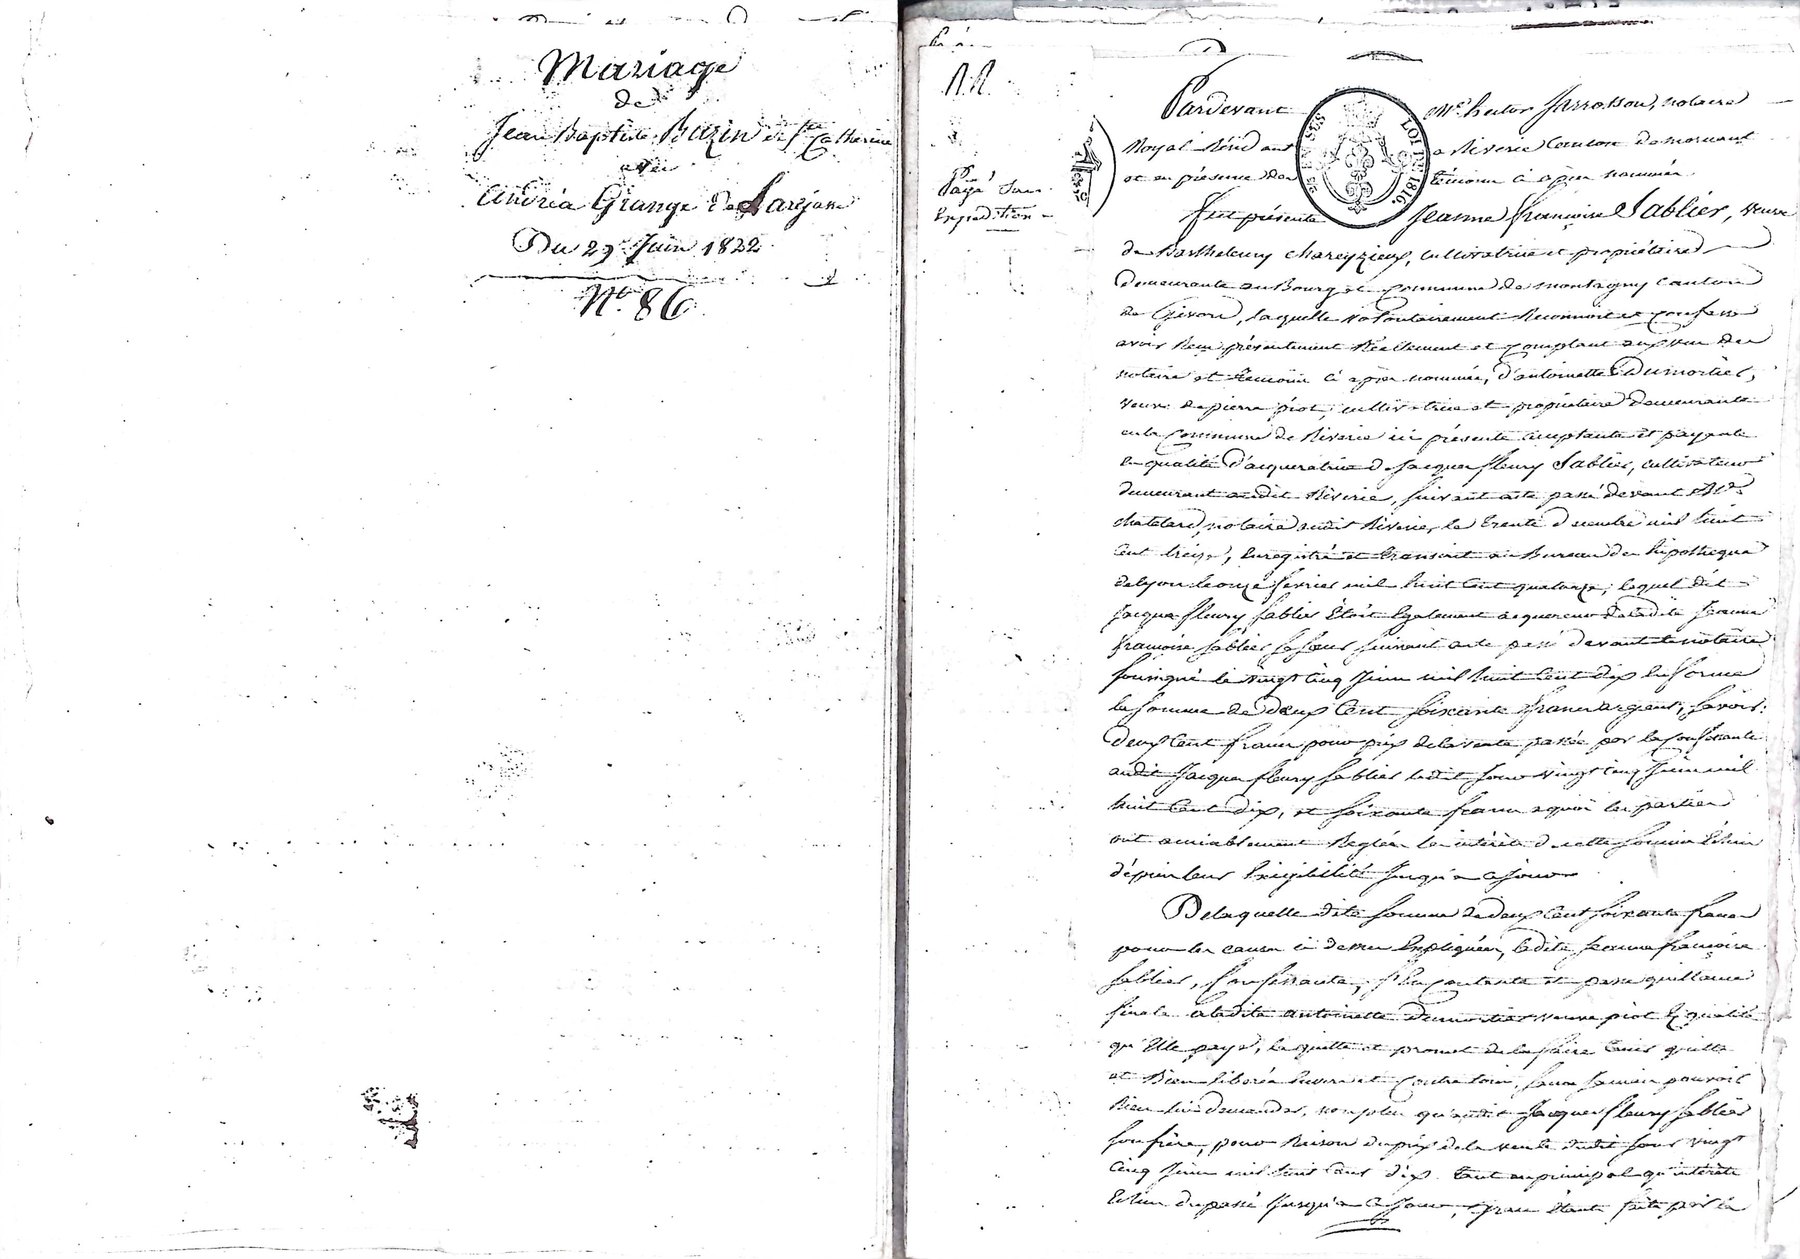 Mariage
de
Jean Baptiste Bazin de Ste Catherine
avec
Andréa Grange de Larajasse
Du 29 Juin 1822
No. 86
Payé Sur
Expedition
Pardevant Me hector Jarrosson, notaire
Royal Résidant a Riverie Canton de mornant
et en présence des témoins ci après nommés
fut présente Jeanne françoise Sablier, veuve
de Barthelemy chareyzieux, cultivatrice et propriétaire
demeurante au Bourg et commune de montagny canton
de Givors, laquelle volontairement Reconnoit et confesse
avoir Reçu présentement Réellement et comptant aux vue des
notaire et témoins ci après nommés, d'antoinette Dumortier,
veuve de pierre piot, cultivatrice et propriétaire demeurante
en la commune de Riverie ici présente acceptante et payante
en qualité d'acqueratrice de Jacques fleury Sablier, cultivateur
demeurant audit Riverie, suivant acte passé devant Me
chatelard, notaire audit Riverie, le trente decembre mil huit
cent treize, enregistré et transcrit au Bureau des hipotheques
de lyon le onze fevrier mil huit cent quatorze, lequel dit
Jacques fleury Sablier étoit également acquereur de ladite Jeanne
françoise Sablier sa sœur suivant acte passé devant le notaire
soussigné le vingt cinq Juin mil huit cent dix en forme
la somme de deux cent soixante francs argent, savoir:
deux cent francs pour prix de la vente passée par la confessante
audit Jacques fleury Sablier ledit jour vingt cinq Juin mil
huit cent dix, et soixante francs a quoi les parties
ont amiablement Reglées les intérêts de cette somme échus
dépuis leur Exigibilité Jusqu'a ce jour
De laquelle dite somme de deux cent soixante francs
pour les causes ci dessus Expliquées, ladite Jeanne françoise
Sablier, confessante, s'en contente et passe quittance
finale a ladite antoinette Dumortier veuve piot En qualité
qu'Elle paye, la quitte et promet de la faire tenir quitte
et Bien liberée Envers et contre tous, sans jamais pouvoir
Rien lui demander, non plus qu'audit Jacques fleury Sablier
son frère, pour Raison du prix de la vente dudit jour vingt
cinq Juin mil huit cent dix tant en principal qu'intérêts
Echus du passé Jusqu'a ce jour, étant faite par la